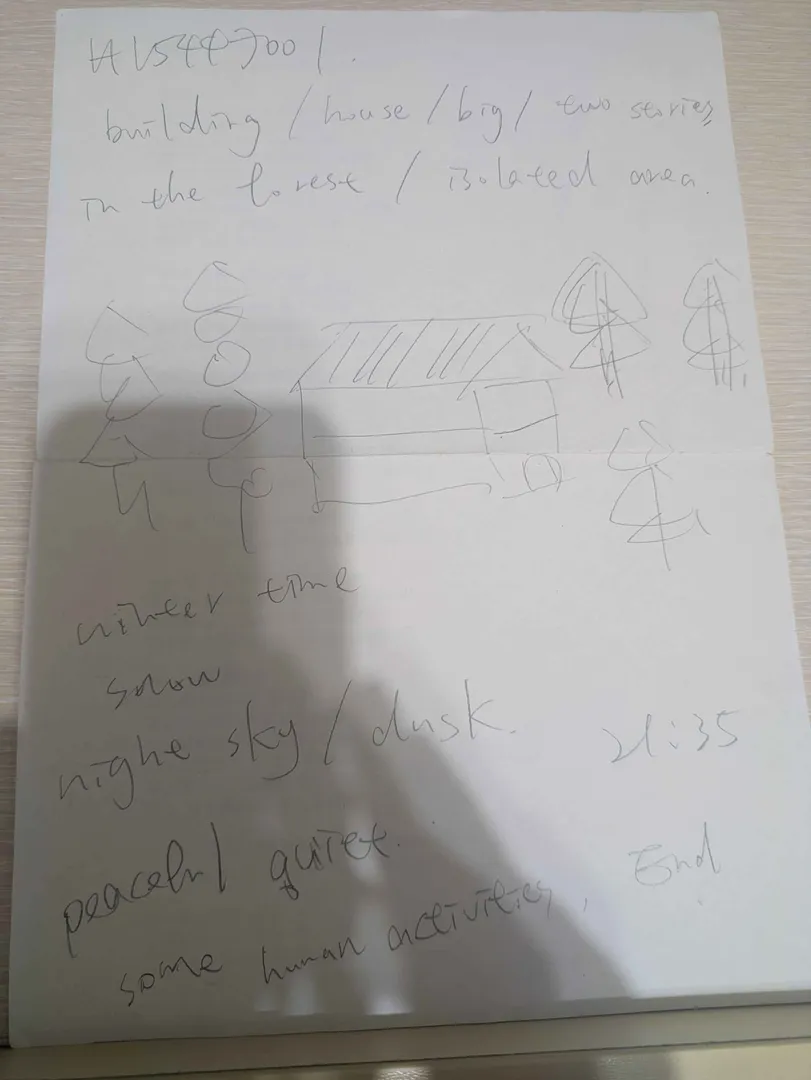 building / house / big / two stories
in the forest / isolated area.
winter time
snow
nighe sky / dusk.
21:35
peaceful quiet.
End
some human activities,